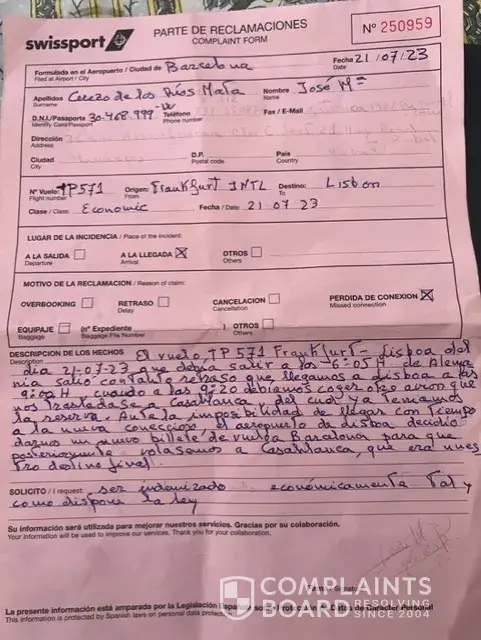 swissport
PARTE DE RECLAMACIONES
COMPLAINT FORM
Nº 250959
Formulada en el Aeropuerto / Ciudad de Barcelona
Filed at Airport / City
Fecha 21/07/23
Date
Apellidos Cerezo de los Ríos Mata
Surname
Nombre José Mª
Name
D.N.I./Pasaporte 30-468.999-W
Identity Card/Passport
Teléfono
Phone number
Fax / E-Mail
Dirección
Address
Ciudad
City
D.P.
Postal code
País
Country
Nº Vuelo: TP571
Flight number
Origen: Frankfurt INTL
From
Destino: Lisbon
To
Clase / Class: Economic
Fecha / Date: 21 07 23
LUGAR DE LA INCIDENCIA / Place of the incident:
A LA SALIDA
Departure
A LA LLEGADA X
Arrival
OTROS
Others
MOTIVO DE LA RECLAMACION / Reason of claim:
OVERBOOKING
RETRASO
Delay
CANCELACION
Cancellation
PERDIDA DE CONEXION X
Missed connection
EQUIPAJE
Baggage
(nº Expediente
Baggage File Number
) OTROS
Others
DESCRIPCION DE LOS HECHOS El vuelo, TP571 Frankfurt- Lisboa del
Description
dia 21-07-23 que debia salir a las -6:05 h de Alema
nia salio con tanto retraso que llegamos a Lisboa a las
H. cuando a las 9:20 debiamos coger otro avion que
nos trasladase a Casablanca del cual ya teniamos
la reserva. Ante la imposibilidad de llegar con tiempo
a la nueva coneccion, el aeropuerto de Lisboa decidió
darnos un nuevo billete de vuelta Barcelona para que
posteriormente volasemos a Casablanca, que era nues
tro destino final.
SOLICITO / I request: ser indemizado economicamente Tal y
como dispone la ley
Su información será utilizada para mejorar nuestros servicios. Gracias por su colaboración.
Your information will be used to improve our services. Thank you for your collaboration.
COMPLAINTS
BOARD RESOLVING
SINCE 2004
La presente información está amparada por la Legislación Española sobre Protección de Datos de Carácter Personal
This information is protected by Spanish laws on personal data protection